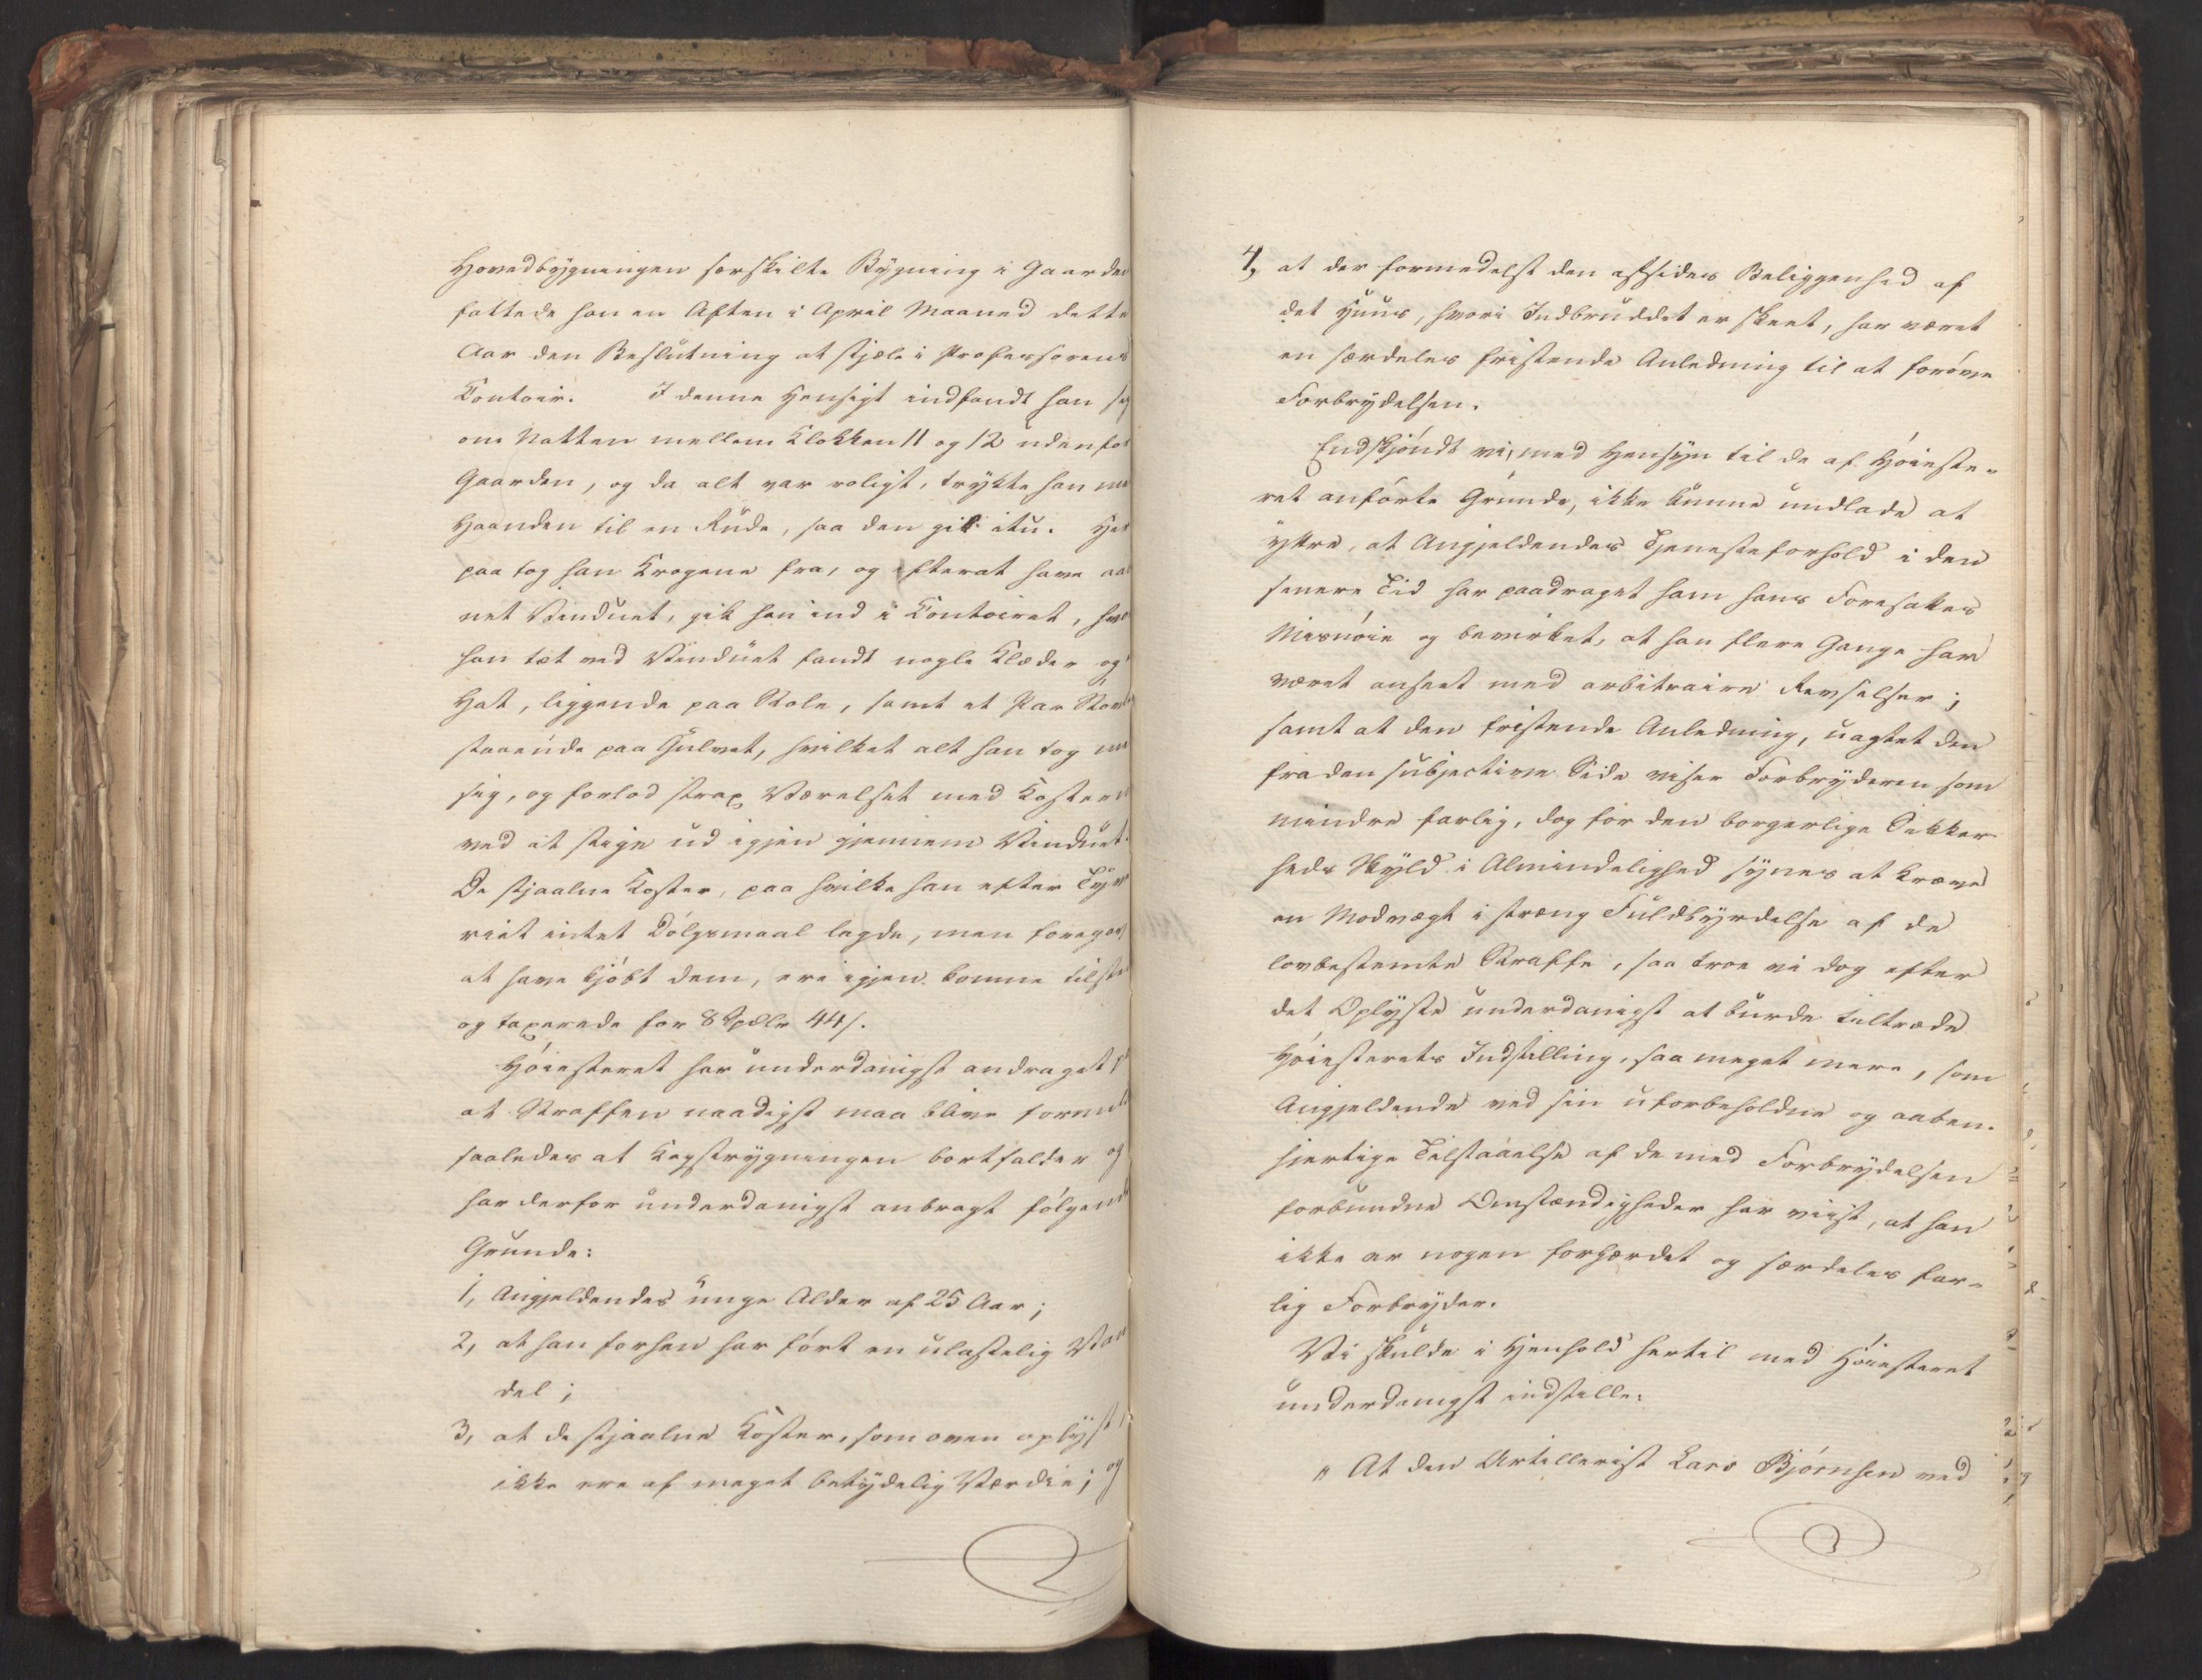 Hovedbygningen særskilte Bygning i Gaarden
fattede han en Aften i April Maaned dette
Aar den Beslutning at stjæle i Professorens
Contoir. I denne Hensigt indfandt han sig
om Natten mellem Klokken 11 og 12 udenfor
Gaarden, og da alt var roligt, trykte han me
Haanden til en Rude, saa den gik itu. Her
paa tog han Krogene fra, og efterat have aab
net Vinduet, gik han ind i Contoiret, hvor
han tæt ved Vinduet fandt nogle Klæder og
Hat, liggende paa Stole, samt et Par Støvle
staaende paa Gulvet, hvilket alt han tog me
sig, og forlod strax Værelset med Kosterne
ved at stige ud igjen gjennem Vinduet.
De stjaalne Koster, paa hvilke han efter Tyve
riet intet Dølgsmaal lagde, men foregav
at have kjøbt dem, ere igjen komne tilstæ
og taxerede for 8 Spdlr 44 s.
Høiesteret har underdanigst andraget p
at Straffen naadigst maa blive formil
saaledes at Kagstrygningen bortfalder og
har derfor underdanigst anbragt følgende
Grunde:
1, Angjeldendes unge Alder af 25 Aar;
2, at han forhen har ført en ulastelig Van
del;
3, at de stjaalne Koster, som oven oplyst,
ikke ere af meget betydelig Værdie; og
4, at der formedelst den afsides Beliggenhed af
det Huus, hvori Indbruddet er skeet, har været
en særdeles fristende Anledning til at forøve
Forbrydelsen.
Endskjøndt vi, med Hensyn til de af Høieste-
ret anførte Grunde, ikke kunne undlade at
yttre, at Angjeldendes Tjenesteforhold i den
senere Tid har paadraget ham hans Foresattes
Misnøie og bevirket, at han flere Gange har
været anseet med arbitraire Revselser;
samt at den fristende Anledning, uagtet den
fra den subjective Side viser Forbryderen som
mindre farlig, dog for den borgerlige Sikker-
heds Skyld i Almindelighed synes at kræve
en Modvægt i streng Fuldbyrdelse af de
lovbestemte Straffe, saa troe vi dog efter
det Oplyste underdanigst at burde tiltræde
Høiesterets Indstilling, saa meget mere, som
Angjeldende ved sin uforbeholdne og aaben-
hjertige Tilstaaelse af de med Forbrydelsen
forbundne Omstændigheder har viist, at han
ikke er nogen forhærdet og særdeles far-
lig Forbryder.
Vi skulde i Henhold hertil med Høiesteret
underdanigst indstille:
" At den Artillerist Lars Bjørnsen ved